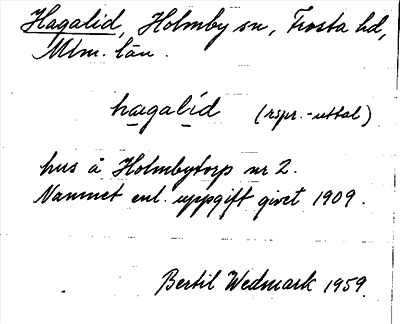 Hagalid, Holmby sn, Frosta hd,
Mlm. län.
hagalid (rspr.-uttal)
hus å Holmbytorp nr 2.
Namnet enl. uppgift givet 1909.
Bertil Wedmark 1959.